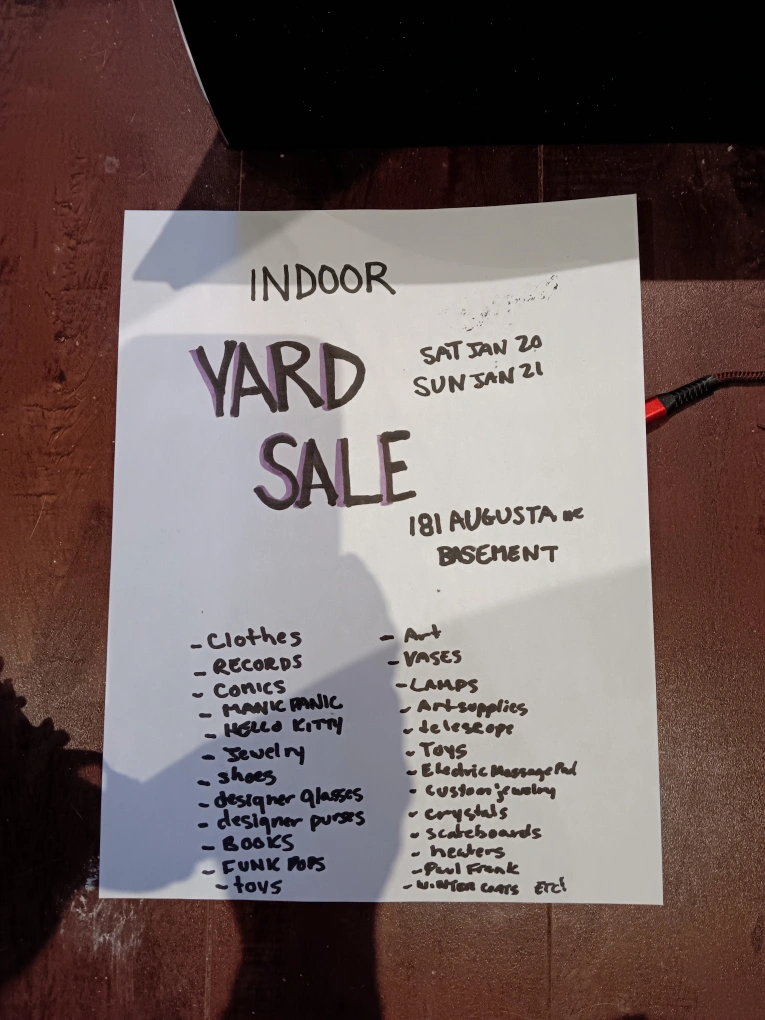 INDOOR
YARD
SALE
SAT JAN 20
SUN JAN 21
181 AUGUSTA
BASEMENT
- Clothes
- RECORDS
- COMICS
- MANIC PANIC
- HELLO KITTY
- Jewelry
- shoes
- designer glasses
- designer purses
- BOOKS
- FUNK POPS
- toys
- Art
- VASES
- LAMPS
- Art supplies
- telescope
- Toys
- Electric Massage Pad
- custom jewelry
- crystals
- scateboards
- heaters
- Paul Frank
- WINTER COATS ETC!